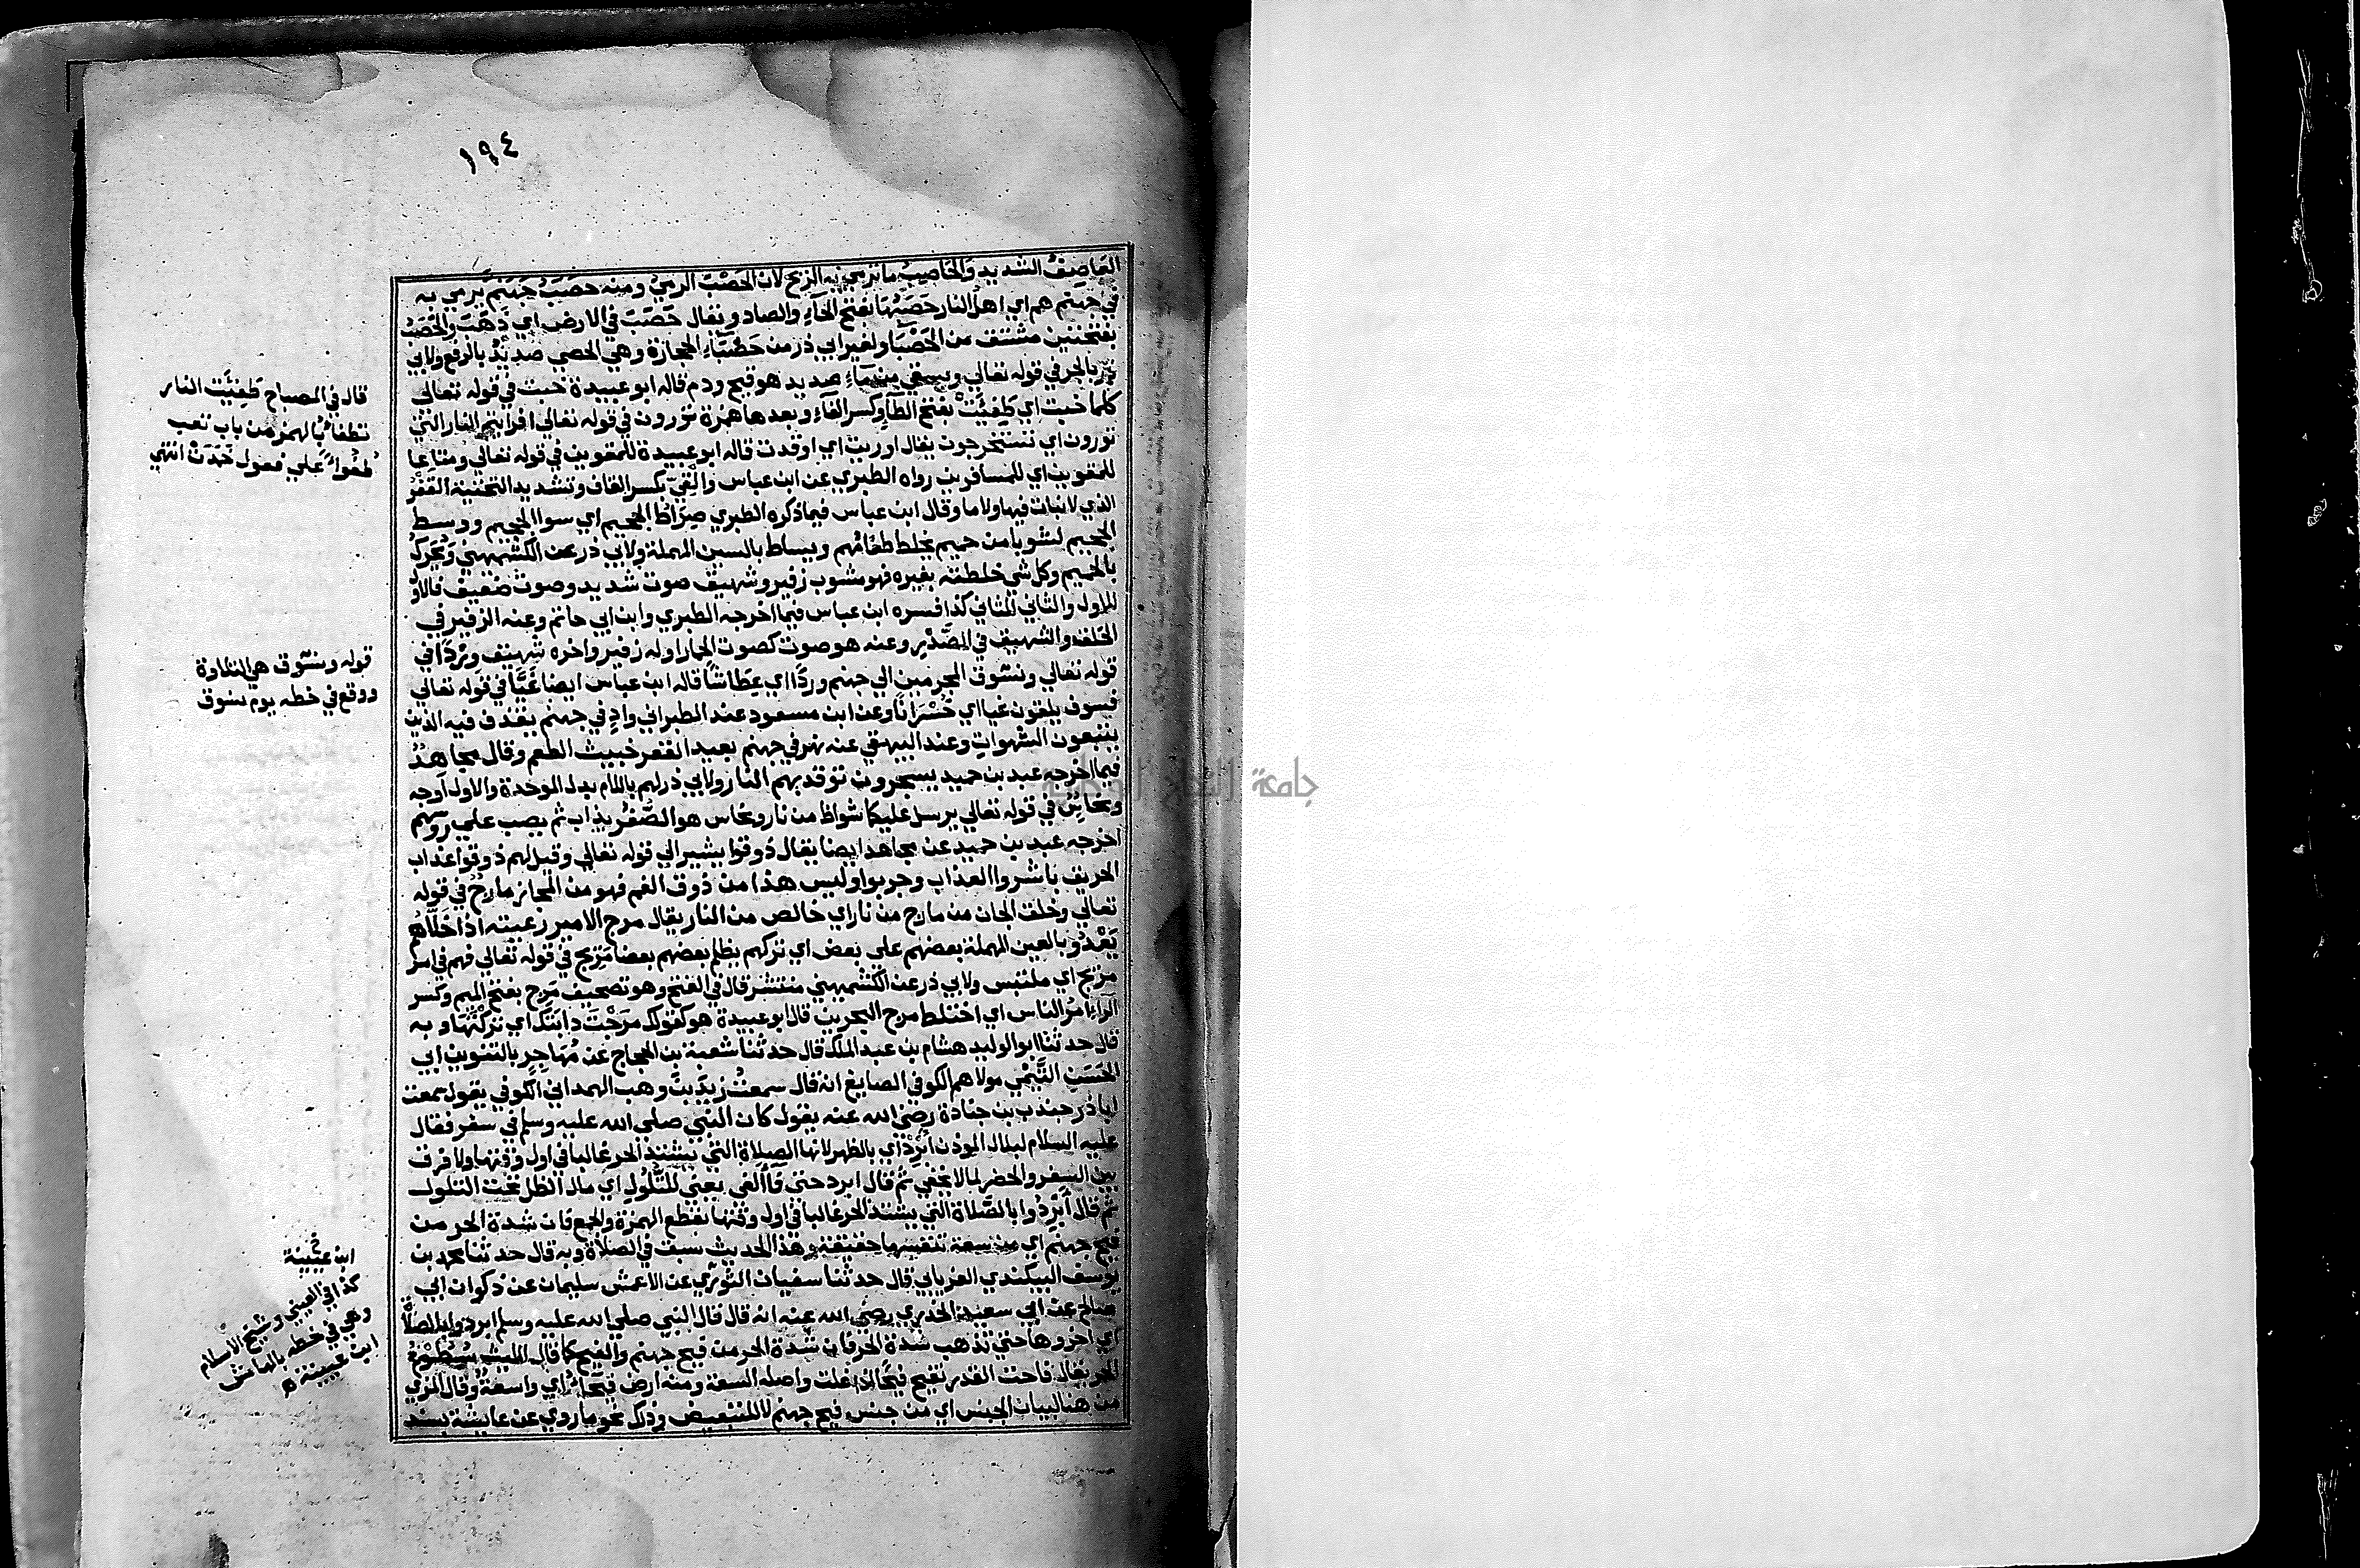 ١٩٤
العَاصِفُ الشديد والحَاصِبُ ما ترمي به الريح لان الحَصْبَ الرميُ ومنه حَصَبُ جَهَنَّم يُرمي به
في جهنم هم اي اهل النار حَصَبُهَا بفتح الحَاءِ والصاد ويقال حَصَبَ في الارض اي ذَهَبَ والحَصَبُ
بفتحتين مشتق من الحَصْبَا ولغير ابي ذر من حَصْبَاءِ الحجارة وهي الحصي صديدٌ بالرفع ولابي
ذر بالجر في قوله تعالي ويسقي من مَاءٍ صديد هو قيح ودم قاله ابو عبيدة خبت في قوله تعالي
كلما خبت اي طَفِئَتْ بفتح الطَّاءِ وكسر الفَاءِ وبعدها همزة تورون في قوله تعالي افرايتم النار التي
تورون اي تستخرجون يقال اوريت اي اوقدت قاله ابو عبيدة للمقوين في قوله تعالي ومتاعا
للمقوين اي للمسافرين رواه الطبري عن ابن عباس والقِيّ بكسر القاف وتشديد التحتية القفر
الذي لا نبات فيها ولا ما وقال ابن عباس فيما ذكره الطبري صِرَاطُ الجحيم اي سوا الجحيم ووسط
الجحيم لشوبا من حميم يخلط طعَامُهم ويساط بالسين المهملة ولابي ذر عن الكشميهني ويُحَرَّكُ
بالحميم وكل شي خلطته بغيره فهو مشوب زفير وشهيق صوت شديد وصوت ضعيف فالاول
للاول والثاني للثاني كذا فسره ابن عباس فيما اخرجه الطبري وابن ابي حاتم وعنه الزفير في
الحلق والشهيق في الصَّدْرِ وعنه هو صوت كصوت الحمار اوله زفير واخره شهيق وِرْدًا في
قوله تعالي ونَسُوقُ المجرمين الي جهنم وردًا اي عِطَاشًا قاله ابن عباس ايضا غَيًّا في قوله تعالي
فسوف يلقون غيا اي خُسْرَانًا وعن ابن مسعود عند الطبراني وادٍ في جهنم يقذف فيه الذين
يتبعون الشهوات وعند البيهقي عنه نهر في جهنم بعيد القعر خبيث الطعم وقال مجاهدٌ
فيما اخرجه عبد بن حميد يسجرون توقد بهم النار ولابي ذر لهم باللام بدل الموحدة والاول اوجه
ونحاسٌ في قوله تعالي يرسل عليكما شواظ من نار ونحاس هو الصُّفْرُ يذاب ثم يصب علي روسهم
اخرجه عبد بن حميد عن مجاهد ايضا يقال ذوقوا يشير الي قوله تعالي وقيل لهم ذوقوا عذاب
الحريق باشروا العذاب وجربوا وليس هذا من ذوق الفم فهو من المجاز مارج في قوله
تعالي وخلق الجان من مارج من نار اي خالص من النار يقال مرج الامير رعيته اذا خَلَّاهُمْ
يَعْدُو بالعين المهملة بعضهم علي بعض اي تركهم يظلم بعضهم بعضا مَرِيجٍ في قوله تعالي فهم في امر
مريج اي ملتبس ولابي ذر عن الكشميهني منتشر قال في الفتح وهو تصحيف مَرِجَ بفتح الميم وكسر
الرَّاءِ امرُ الناس اي اختلط مرج البحرين قال ابو عبيدة هو كقولك مَرَجْتَ دابتَك اي تركْتَهَا وبه
قال حدثنا ابو الوليد هشام بن عبد الملك قال حدثنا شعبة بن الحجاج عن مُهَاجِرٍ بالتنوين ابي
الحَسَنِ التَّيْمي مولاهم الكوفي الصايغ انه قال سمعتُ زيدَ بنَ وهب الهمداني الكوفي يقول سمعت
ابا ذر جندب بن جنادة رضي الله عنه يقول كان النبي صلي الله عليه وسلم في سفر فقال
عليه السلام لبلال الموذن ابْرِدْ اي بالظهر لانها الصلاة التي يشتد الحر غالبا في اول وقتها ولا فرق
بين السفر والحضر لما لا يخفي ثم قال ابرد حتي فَاءَ الفي يعني للتُّلُولِ اي مال الظل تحت التلول
ثم قال أَبْرِدُوا بالصَّلاة التي يشتد الحر غالبا في اول وقتها بقطع الهمزة والجمع فان شدة الحر من
فيح جهنم اي من سعة تنفسها حقيقة وهذا الحديث سبق في الصلاة وبه قال حدثنا محمد بن
يوسف البيكندي الفريابي قال حدثنا سفيان الثوري عن الاعمش سليمان عن ذكوان ابي
صالح عن ابي سعيد الخدري رضي الله عنه انه قال قال النبي صلي الله عليه وسلم ابردوا بالصلاة
اي اخروها حتي تذهب شدة الحر فان شدة الحر من فيح جهنم والفيح كما قال الليث سُطُوعُ
الحر يقال فاحت القدر تفيح فيحًا اذا غلت واصله السعة ومنه ارض فيحاءُ اي واسعة وقال المزي
من هنا لبيان الجنس اي من جنس فيح جهنم لا للتبعيض وذلك نحو ما روي عن عايشة بسند
قال في المصباح طَفِئَت النار
تطفأ بالهمز من باب تعب
طُفُوءً علي فعول خَمَدَتْ انتهي
قوله ونسوق هي التلاوة
ووقع في خطه يوم نسوق
ابن عتيبة
كذا في العيني وشيخ الاسلام
وهي في خطه بالهامش
ابن عيينة ه
جامعة